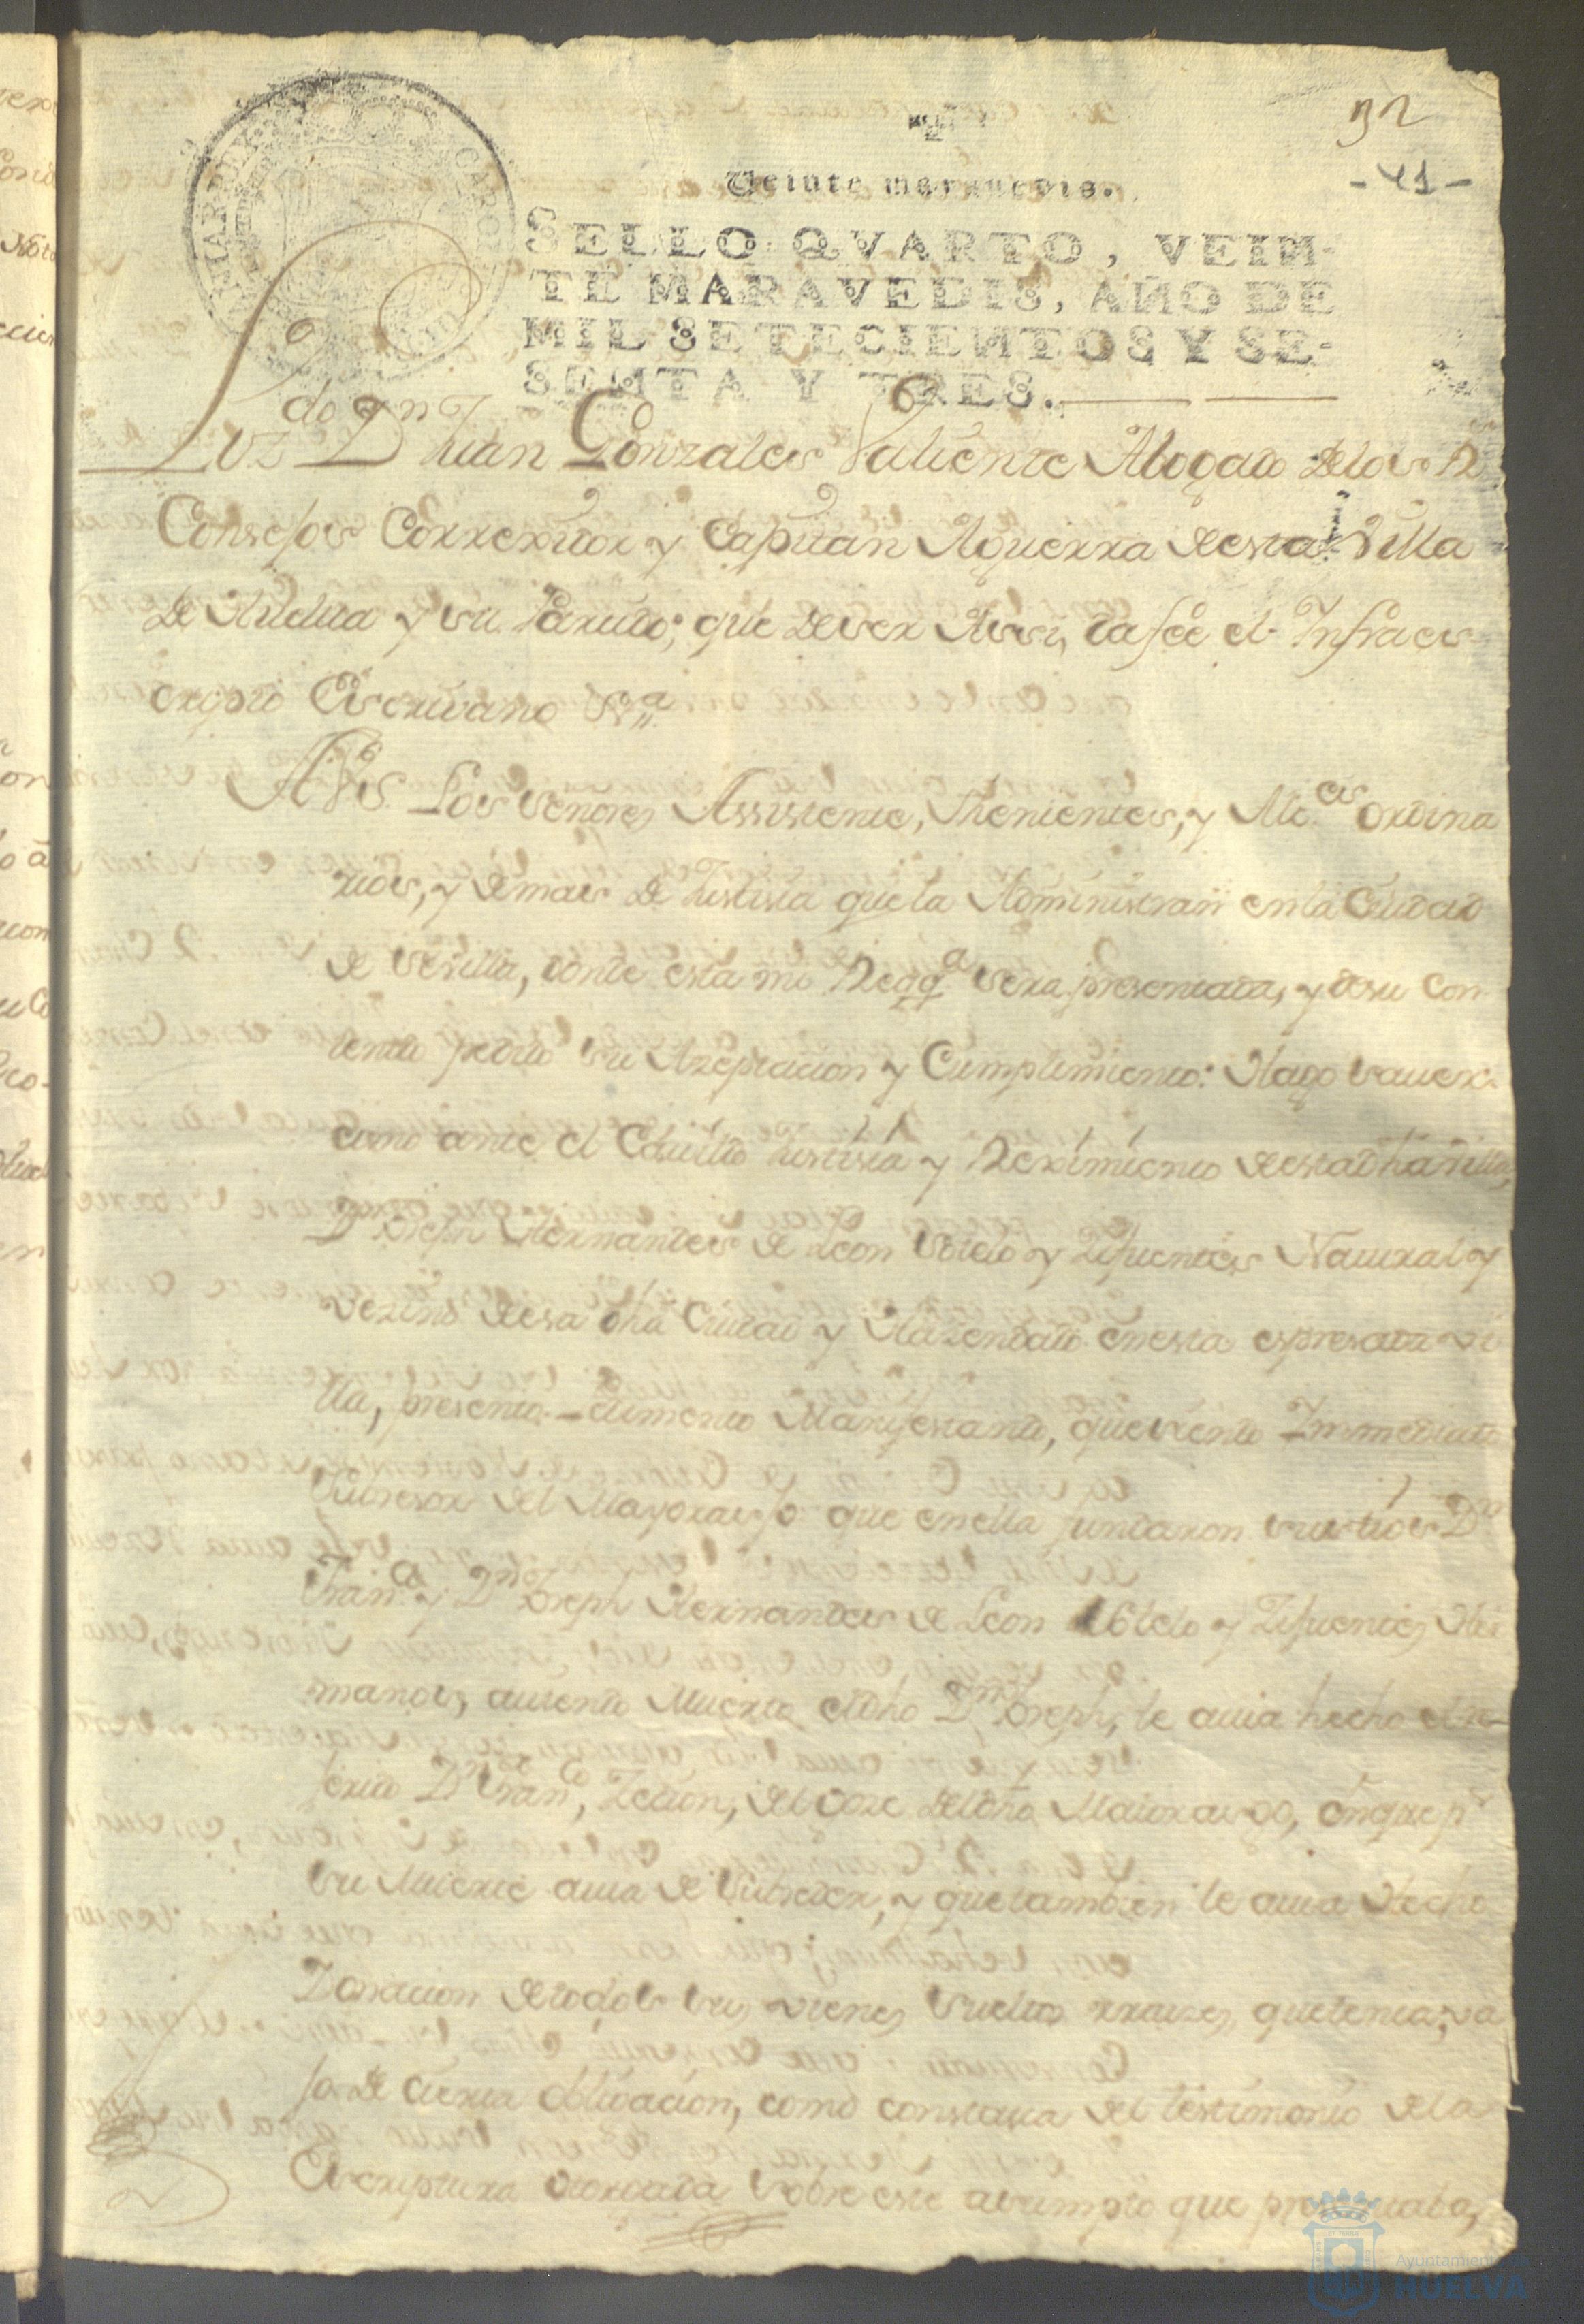 32
- 41 -
Veinte maravedis.
SELLO QVARTO, VEIN-
TE MARAVEDIS, AÑO DE
MIL SETECIENTOS Y SE-
SENTA Y TRES.
CAROL
HISPANIAR REX
Lizdo Dn Juan Gonzales Valiente Abogado delos Rs
Consejos Correxidor y Capitan Aguerra deesta Villa
de Huelua y su Partido; que deser Assi, da feé el Infraes-
cripto Escriuano Ssa
AVSs Los Señores Assistente, Thenientes, y Alces ordina
rios, y demas de Justisia quela Administran enla Ciudad
de Sevilla, donde esta mi Reqqa sera presentada, y desu con-
tenido pedido su Azeptacion y Cumplimiento: Hago sauer:
como ante el Cavildo Justisia y Reximiento deesta dha villa,
Dn Joseph Hernandes de Leon Toledo y Zifuentes Natural y
vezino deesa dha Ciudad y Hazendado enesta espresada vi
lla, presento pedimento Manifestando, quesiendo Inmediato
Subsesor del Mayorasgo que enella fundaron sus tios Dn
Franco y Dn Joseph Hernandes de Leon Toledo y Zifuentes Her
manos, auiendo Muerto eldho Dn Joseph, le auia hecho elre-
ferido Dn Franco, Zesion, del Goze deldho Maiorasgo, enque pr
su Muerte auia de Subseder, y quetambien le auia Hecho
Donacion detodos sus vienes sueltos rraizes, quetenia, va
jo de cierta obligacion, como constaua del testimonio dela
Escriptura otorgada sobre este asumpto que presentaba,
Ayuntamiento de
HUELVA